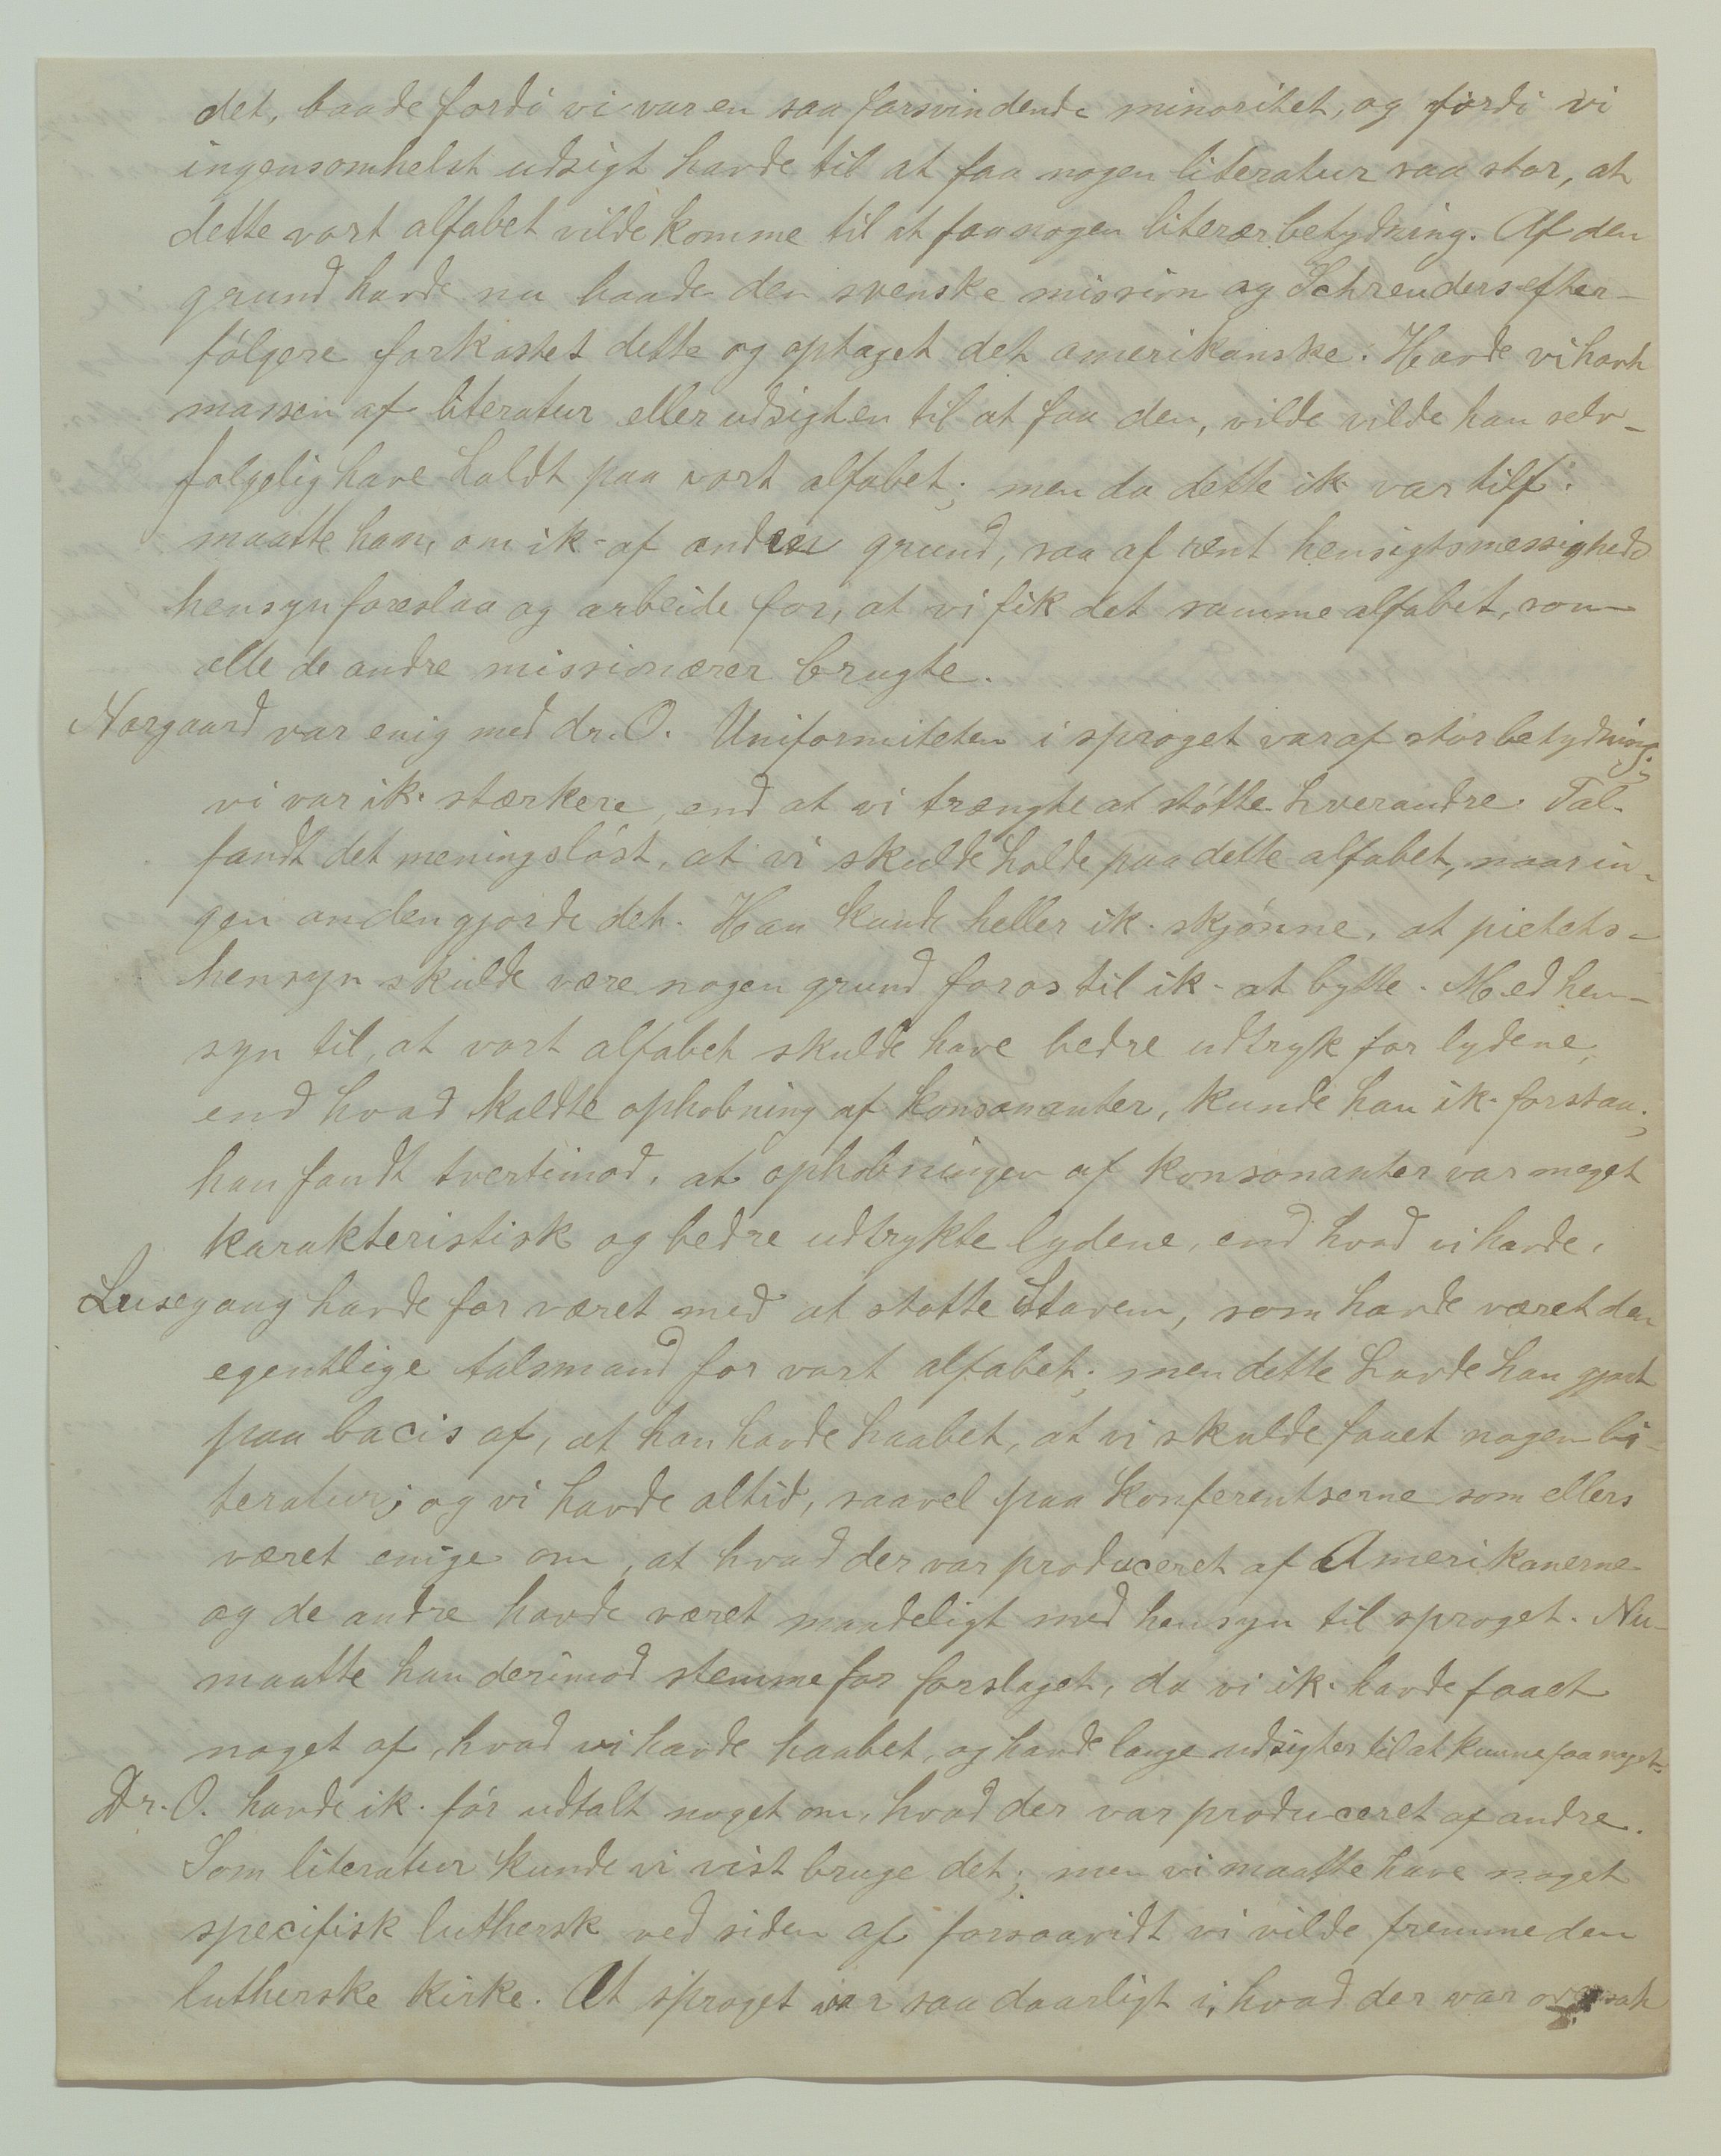 det, baade fordi vi var en saa forsvindende minoritet, og fordi vi
ingensomhelst udsigt havde til at faa nogen literatur saa stor, at
dette vort alfabet vilde komme til at faa nogen literær betydning. Af den
grund havde nu baade den svenske mission og Schreuders efter-
fólgere forkastet dette og optaget det amerikanske. Havde vi havt
massen af literatur eller udsigten til at faa den, vilde vilde han selv-
følgelig have holdt paa vort alfabet; men da dette ik. var tilf.
maatte han, om ik. af anden grund, saa af rent hensigtsmessigheds
hensyn foreslaa og arbeide for, at vi fik det samme alfabet, som
alle de andre missionærer brugte.
Nørgaard var enig med dr. O. Uniformiteten i sproget var af stor betydning;
vi var ik. stærkere, end at vi trængte at stótte hverandre. Tal.
fandt det meningslóst, at vi skulde holde paa dette alfabet, naar in-
gen anden gjorde det. Han kunde heller ik. skjónne, at pietets-
hensyn skulde være nogen grund for os til ik. at bytte. Med hen-
syn til, at vort alfabet skulde have bedre udtryk for lydene,
end hvad kaldte ophobning af konsonanter, kunde han ik. forstaa;
han fandt tvertimod, at ophobningen af konsonanter var meget
karakteristisk og bedre udtrykte lydene, end hvad vi havde.
Leisegang havde for været med at støtte Stavem, som havde været den
egentlige talsmand for vort alfabet; men dette havde han gjort
paa bacis af, at han havde haabet, at vi skulde faaet nogen li-
teratur; og vi havde altid, saavel paa konferentserne som ellers
været enige om, at hvad der var produceret af Amerikanerne
og de andre havde været maadeligt med hensyn til sproget. Nu
maatte han derimod stemme for forslaget, da vi ik. havde faaet
noget af, hvad vi havde haabet, og havde lange udsigter til at kunne faa noget.
Dr. O. havde ik. fór udtalt noget om, hvad der var produceret af andre.
Som literatur kunde vi vist bruge det; men vi maatte have noget
specifisk luthersk ved siden af forsaavidt vi vilde fremme den
lutherske kirke. At sproget var saa daarligt i, hvad der var oversat